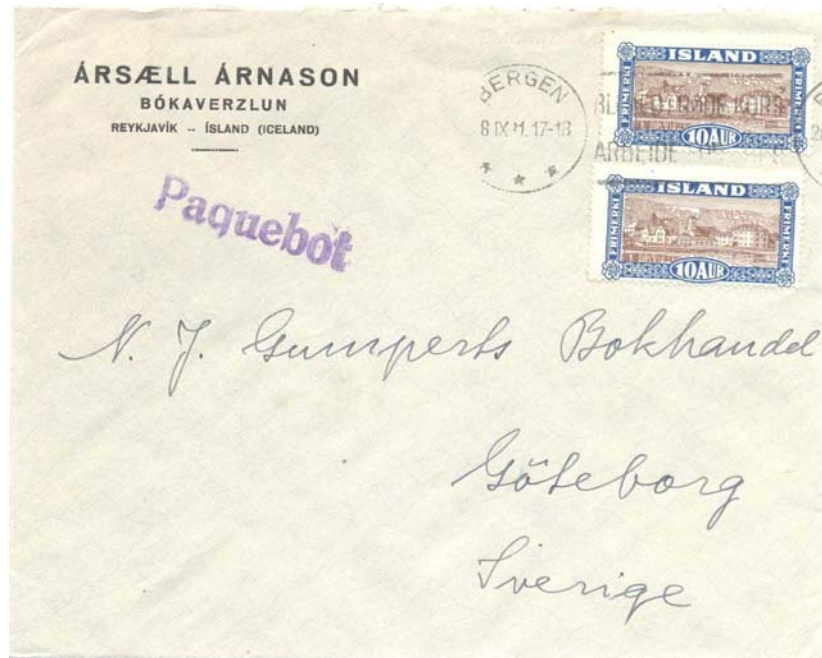 ÁRSÆLL ÁRNASON
BÓKAVERZLUN
REYKJAVÍK -- ÍSLAND (ICELAND)
BERGEN
8 IX 17-18
ARBEIDE
ISLAND
FRIMERKI
FRIMERKI
10 AUR
ISLAND
FRIMERKI
FRIMERKI
10 AUR
Paquebot
N. J. Gumperts Bokhandel
Göteborg
Sverige